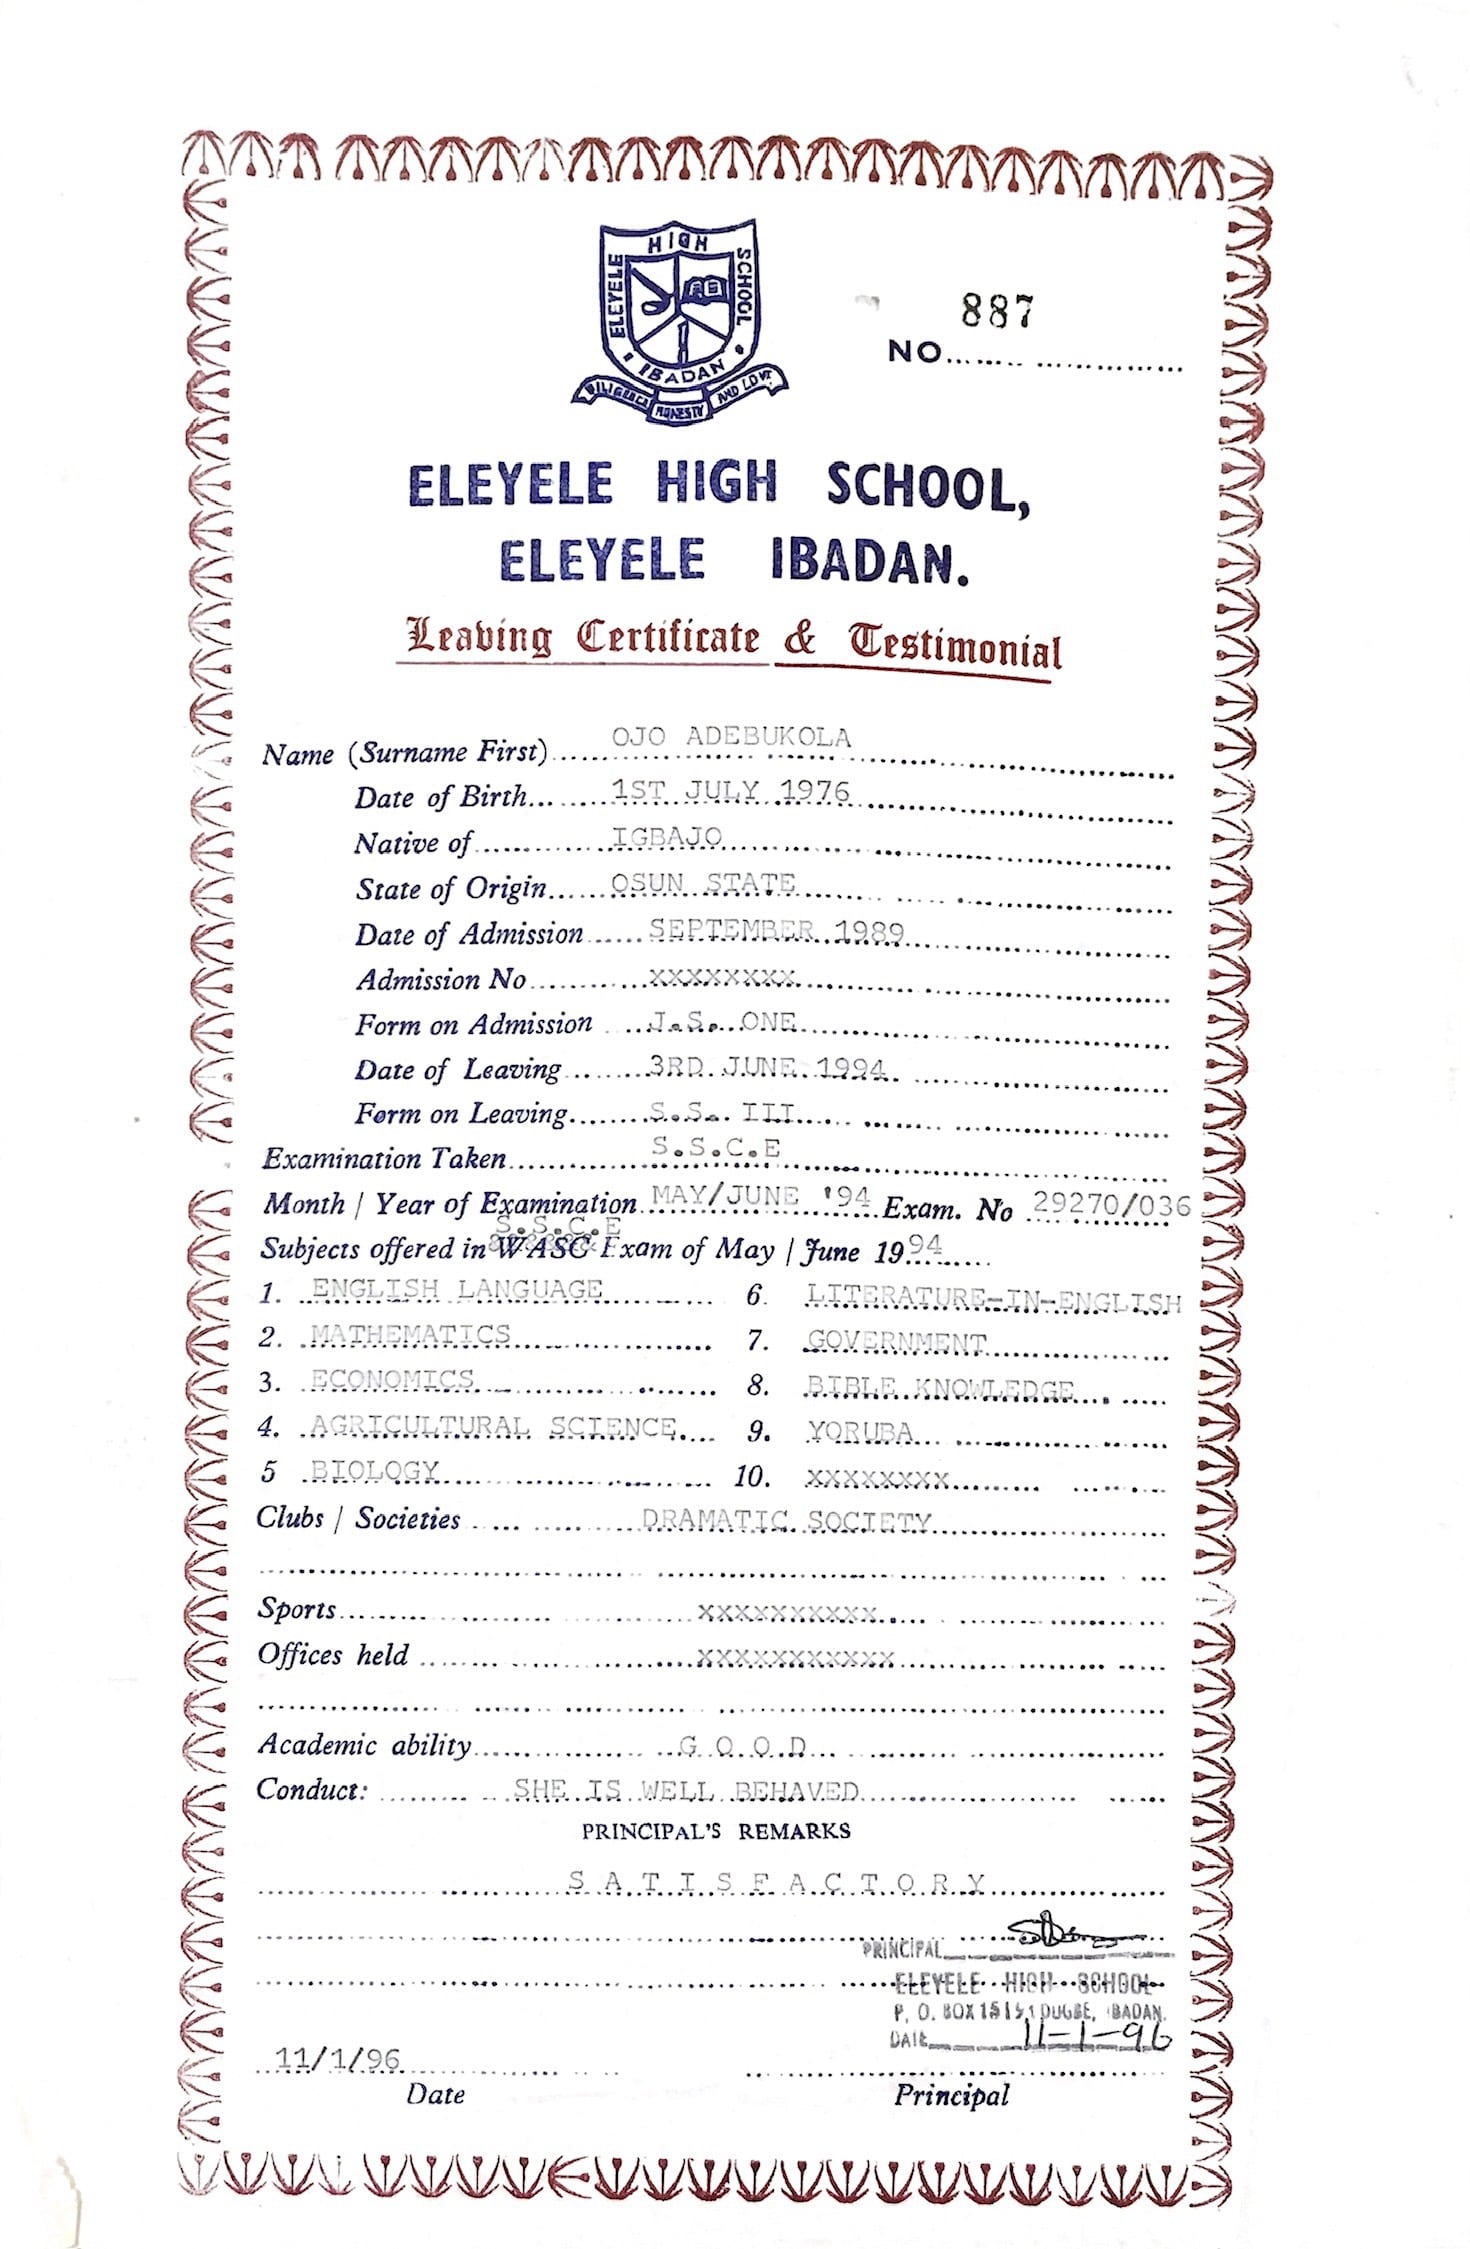 ELEYELE HIGH SCHOOL
IBADAN
DILIGENCE HONESTY AND LOVE
887
NO
ELEYELE HIGH SCHOOL,
ELEYELE IBADAN.
Leaving Certificate & Testimonial
Name (Surname First) OJO ADEBUKOLA
Date of Birth 1ST JULY 1976
Native of IGBAJO
State of Origin OSUN STATE
Date of Admission SEPTEMBER 1989
Admission No XXXXXXXX
Form on Admission J.S. ONE
Date of Leaving 3RD JUNE 1994
Form on Leaving S.S. III
Examination Taken S.S.C.E
Month / Year of Examination MAY/JUNE '94 Exam. No 29270/036
S.S.C.E
Subjects offered in WASC Exam of May / June 1994
1. ENGLISH LANGUAGE 6. LITERATURE-IN-ENGLISH
2. MATHEMATICS 7. GOVERNMENT
3. ECONOMICS 8. BIBLE KNOWLEDGE
4. AGRICULTURAL SCIENCE 9. YORUBA
5 BIOLOGY 10. XXXXXXXX
Clubs / Societies DRAMATIC SOCIETY
Sports XXXXXXXXXX
Offices held XXXXXXXXXXX
Academic ability G O O D
Conduct: SHE IS WELL BEHAVED
PRINCIPAL'S REMARKS
S A T I S F A C T O R Y
PRINCIPAL
ELEYELE HIGH SCHOOL
P. O. BOX DUGBE, IBADAN.
DATE 11-1-96
11/1/96
Date Principal